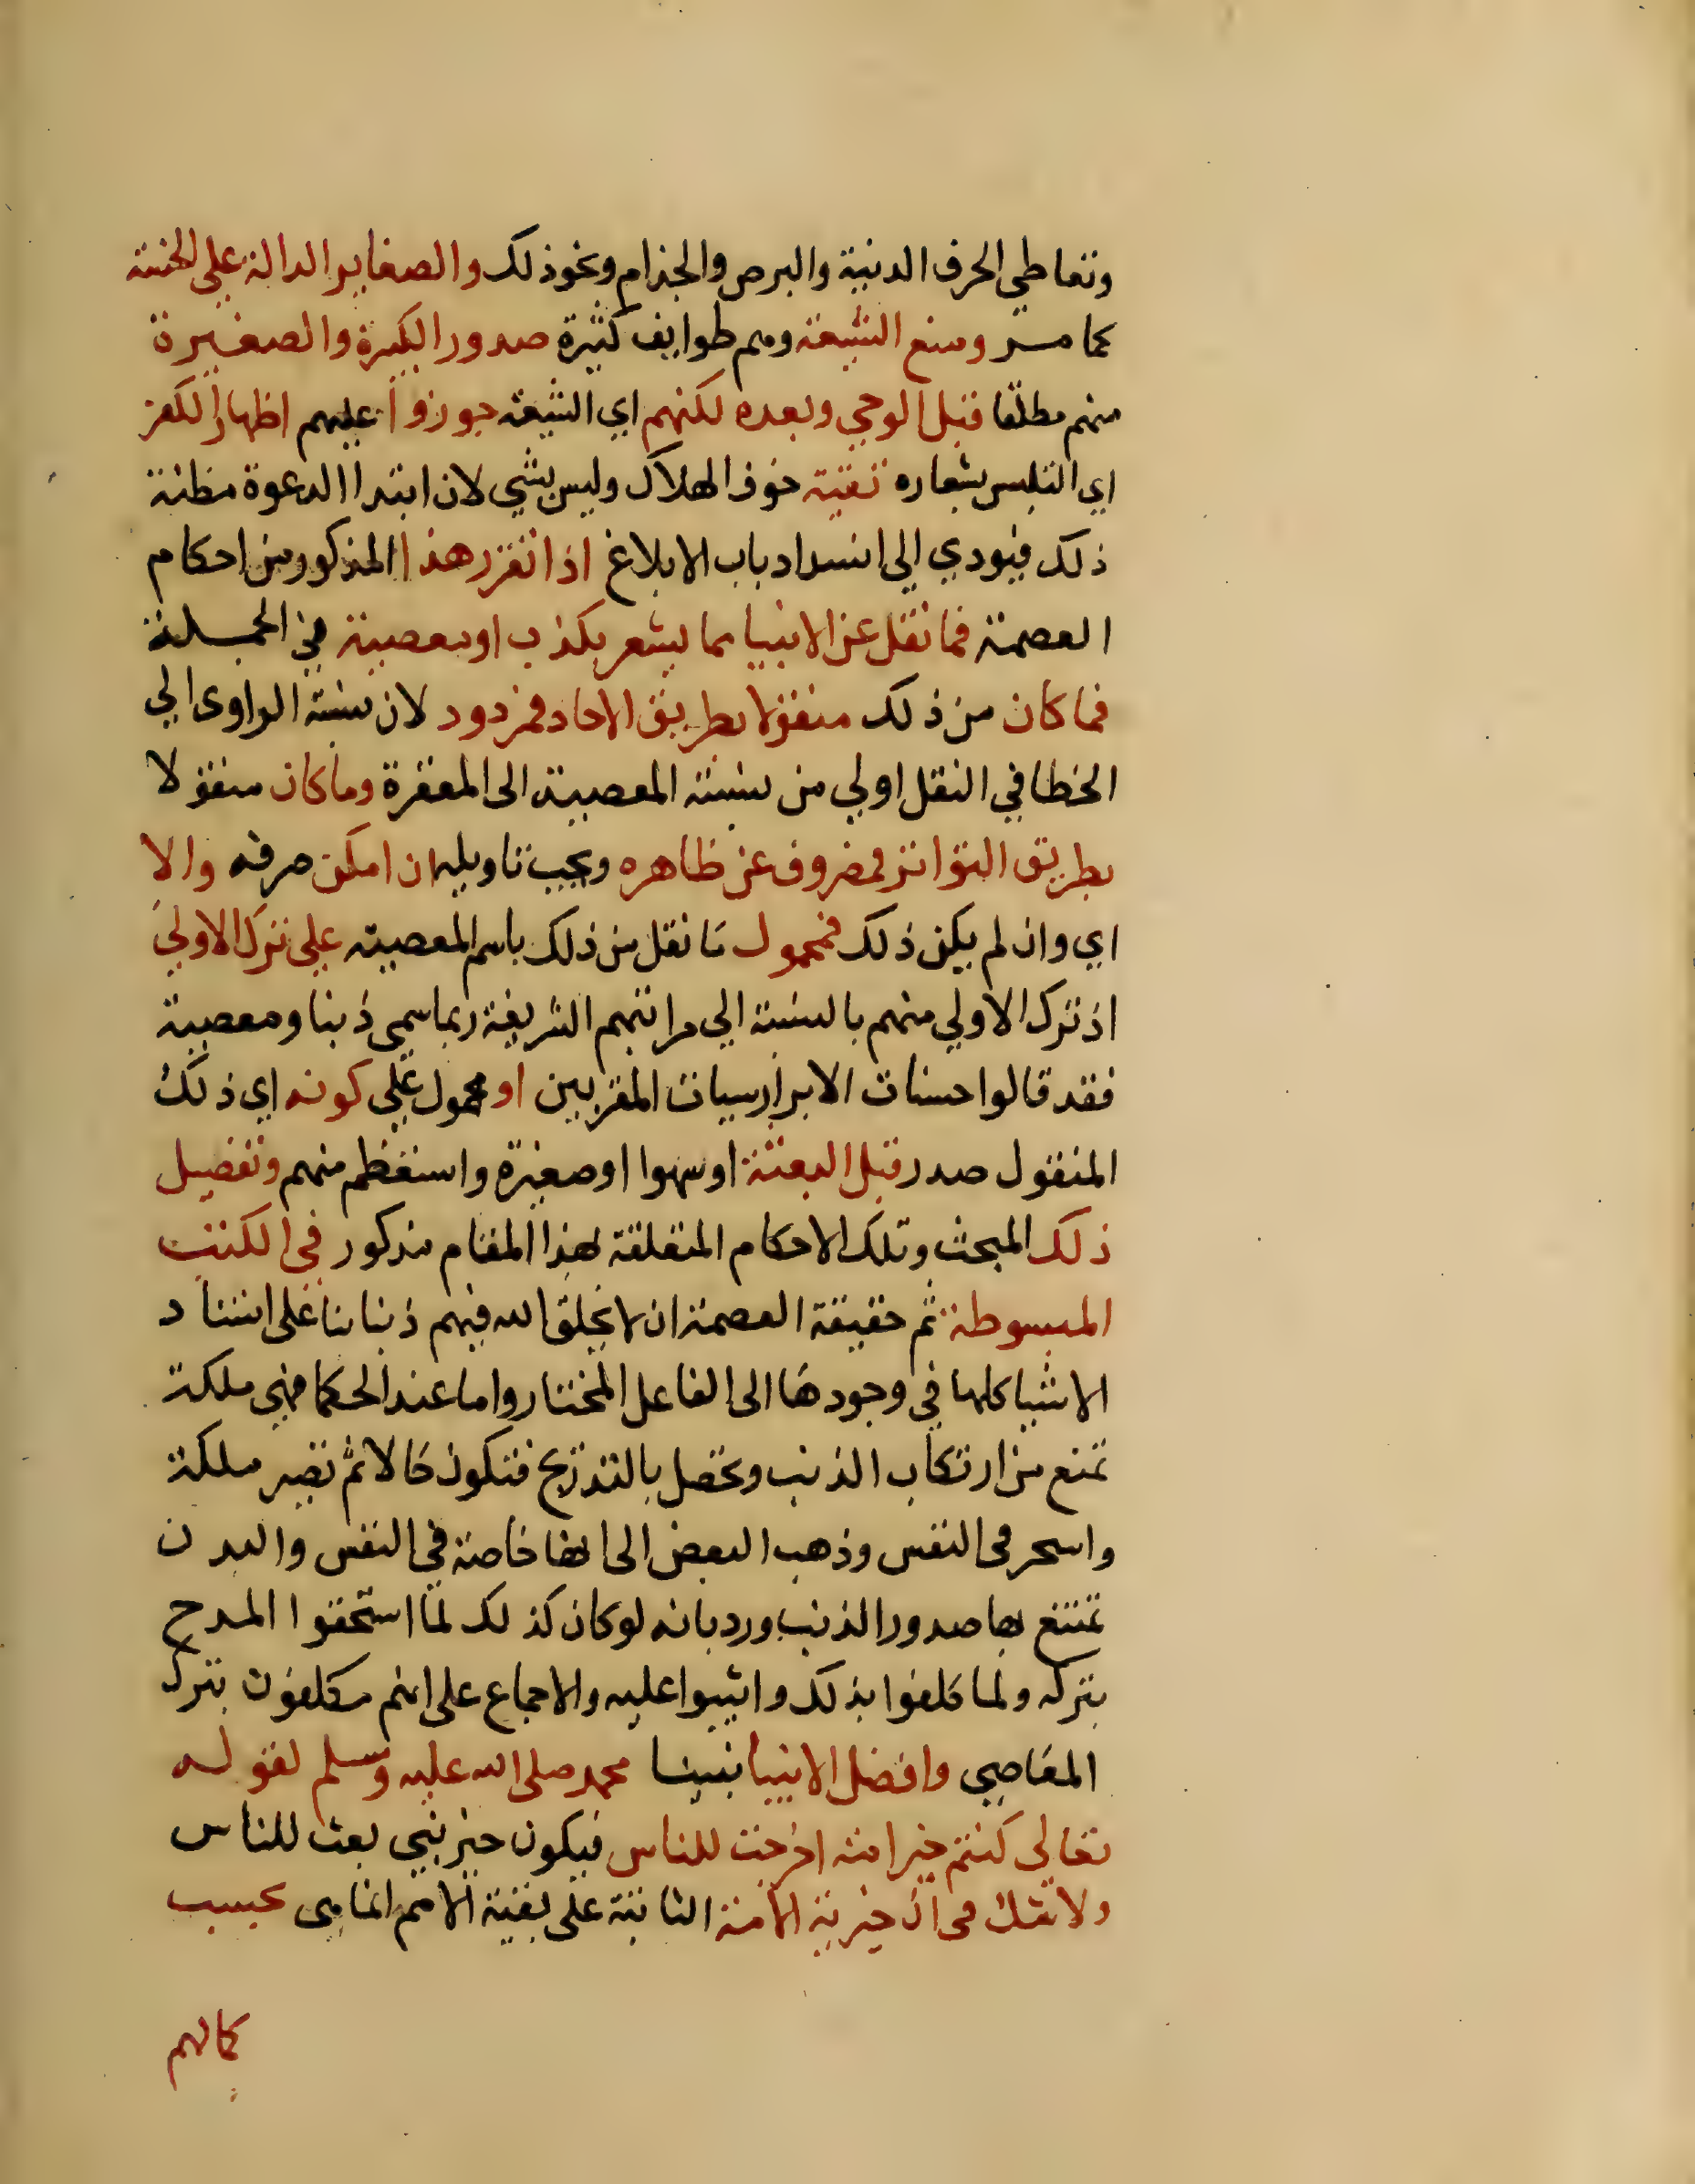 وتعاطي الحرف الدنية والبرص والجذام ونحو ذلك والصغاير الدالة علي الخسة
كما مر ومنع الشيعة وهم طوايف كثيرة صدور الكبيرة والصغيرة
منهم مطلقا قبل الوحي وبعده لكنهم اي الشيعة جوزوا عليهم اظهار الكفر
اي التلبس بشعاره تقية خوف الهلاك وليس بشي لان ابتدا الدعوة مظنة
ذلك فيودي الي انسداد باب الابلاغ اذا تقرر هذا المذكور من احكام
العصمة فما نقل عن الانبيا مما يشعر بكذب او معصية في الجملة
فما كان من ذلك منقولا بطريق الاحاد فمردود لان نسبة الراوي الي
الخطا في النقل اولي من نسبة المعصية الى المغفرة وما كان منقولا
بطريق التواتر فمصروف عن ظاهره ويجب تاويله ان امكن صرفه والا
اي وان لم يكن ذلك فمحمول ما نقل من ذلك باسم المعصية علي ترك الاولي
اذ ترك الاولي منهم بالنسبة الي مراتبهم الشريفة ربما سمي ذنبا ومعصية
فقد قالوا حسنات الابرار سيات المقربين او محمول علي كونه اي ذلك
المنقول صدر قبل البعثة او سهوا او صغيرة واستعظم منهم وتفصيل
ذلك المبحث وتلك الاحكام المتعلقة لهذا المقام مذكور في الكتب
المبسوطة ثم حقيقة العصمة ان لا يخلق الله فيهم ذنبا بنا على استناد
الاشيا كلها في وجودها الى الفاعل المختار واما عند الحكما فهي ملكة
تمنع من ارتكاب الذنب وتحصل بالتدريج فتكون حالا ثم تصير ملكة
في النفس وذهب البعض الى انها خاصة في النفس والبدن
تمتنع بها صدور الذنب ورد بانه لو كان كذلك لما استحقوا المدح
بتركه ولما كلفوا بذلك واثيبوا عليه والاجماع على انهم مكلفون بترك
المعاصي وافضل الانبيا نبينا محمد صلى الله عليه وسلم لقوله
تعالي كنتم خير امة اخرجت للناس فيكون خير نبي بعث للناس
ولا شك في ان خيرية الامة الثابتة على بقية الامم انما هي بحسب
كمالهم